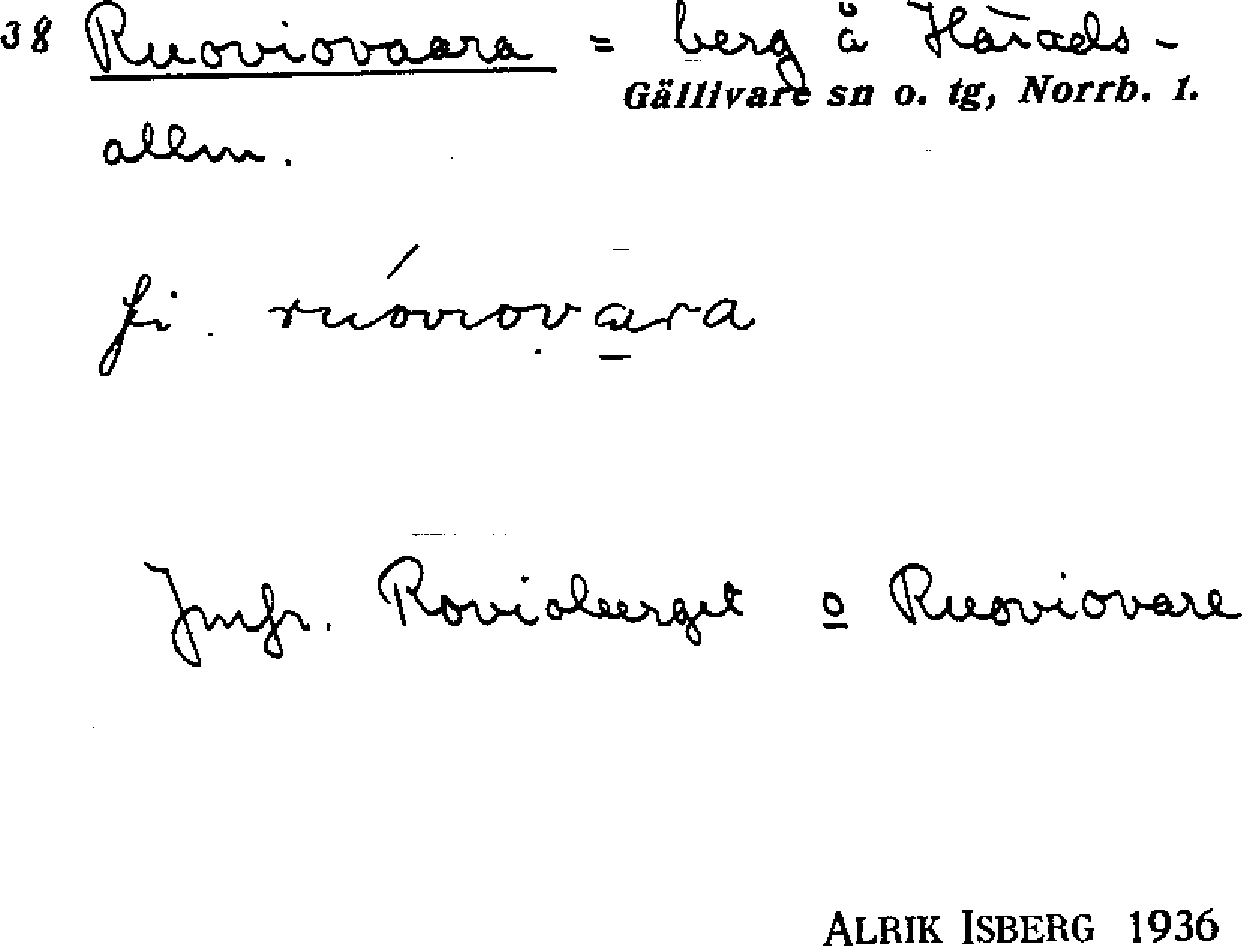 38 Ruoviovaara = berg å Härads-
Gällivare sn o. tg, Norrb. l.
allm.
fi. rúoviovạ̄ra
Jmfr. Rovioberget o Ruoviovare
ALRIK ISBERG 1936